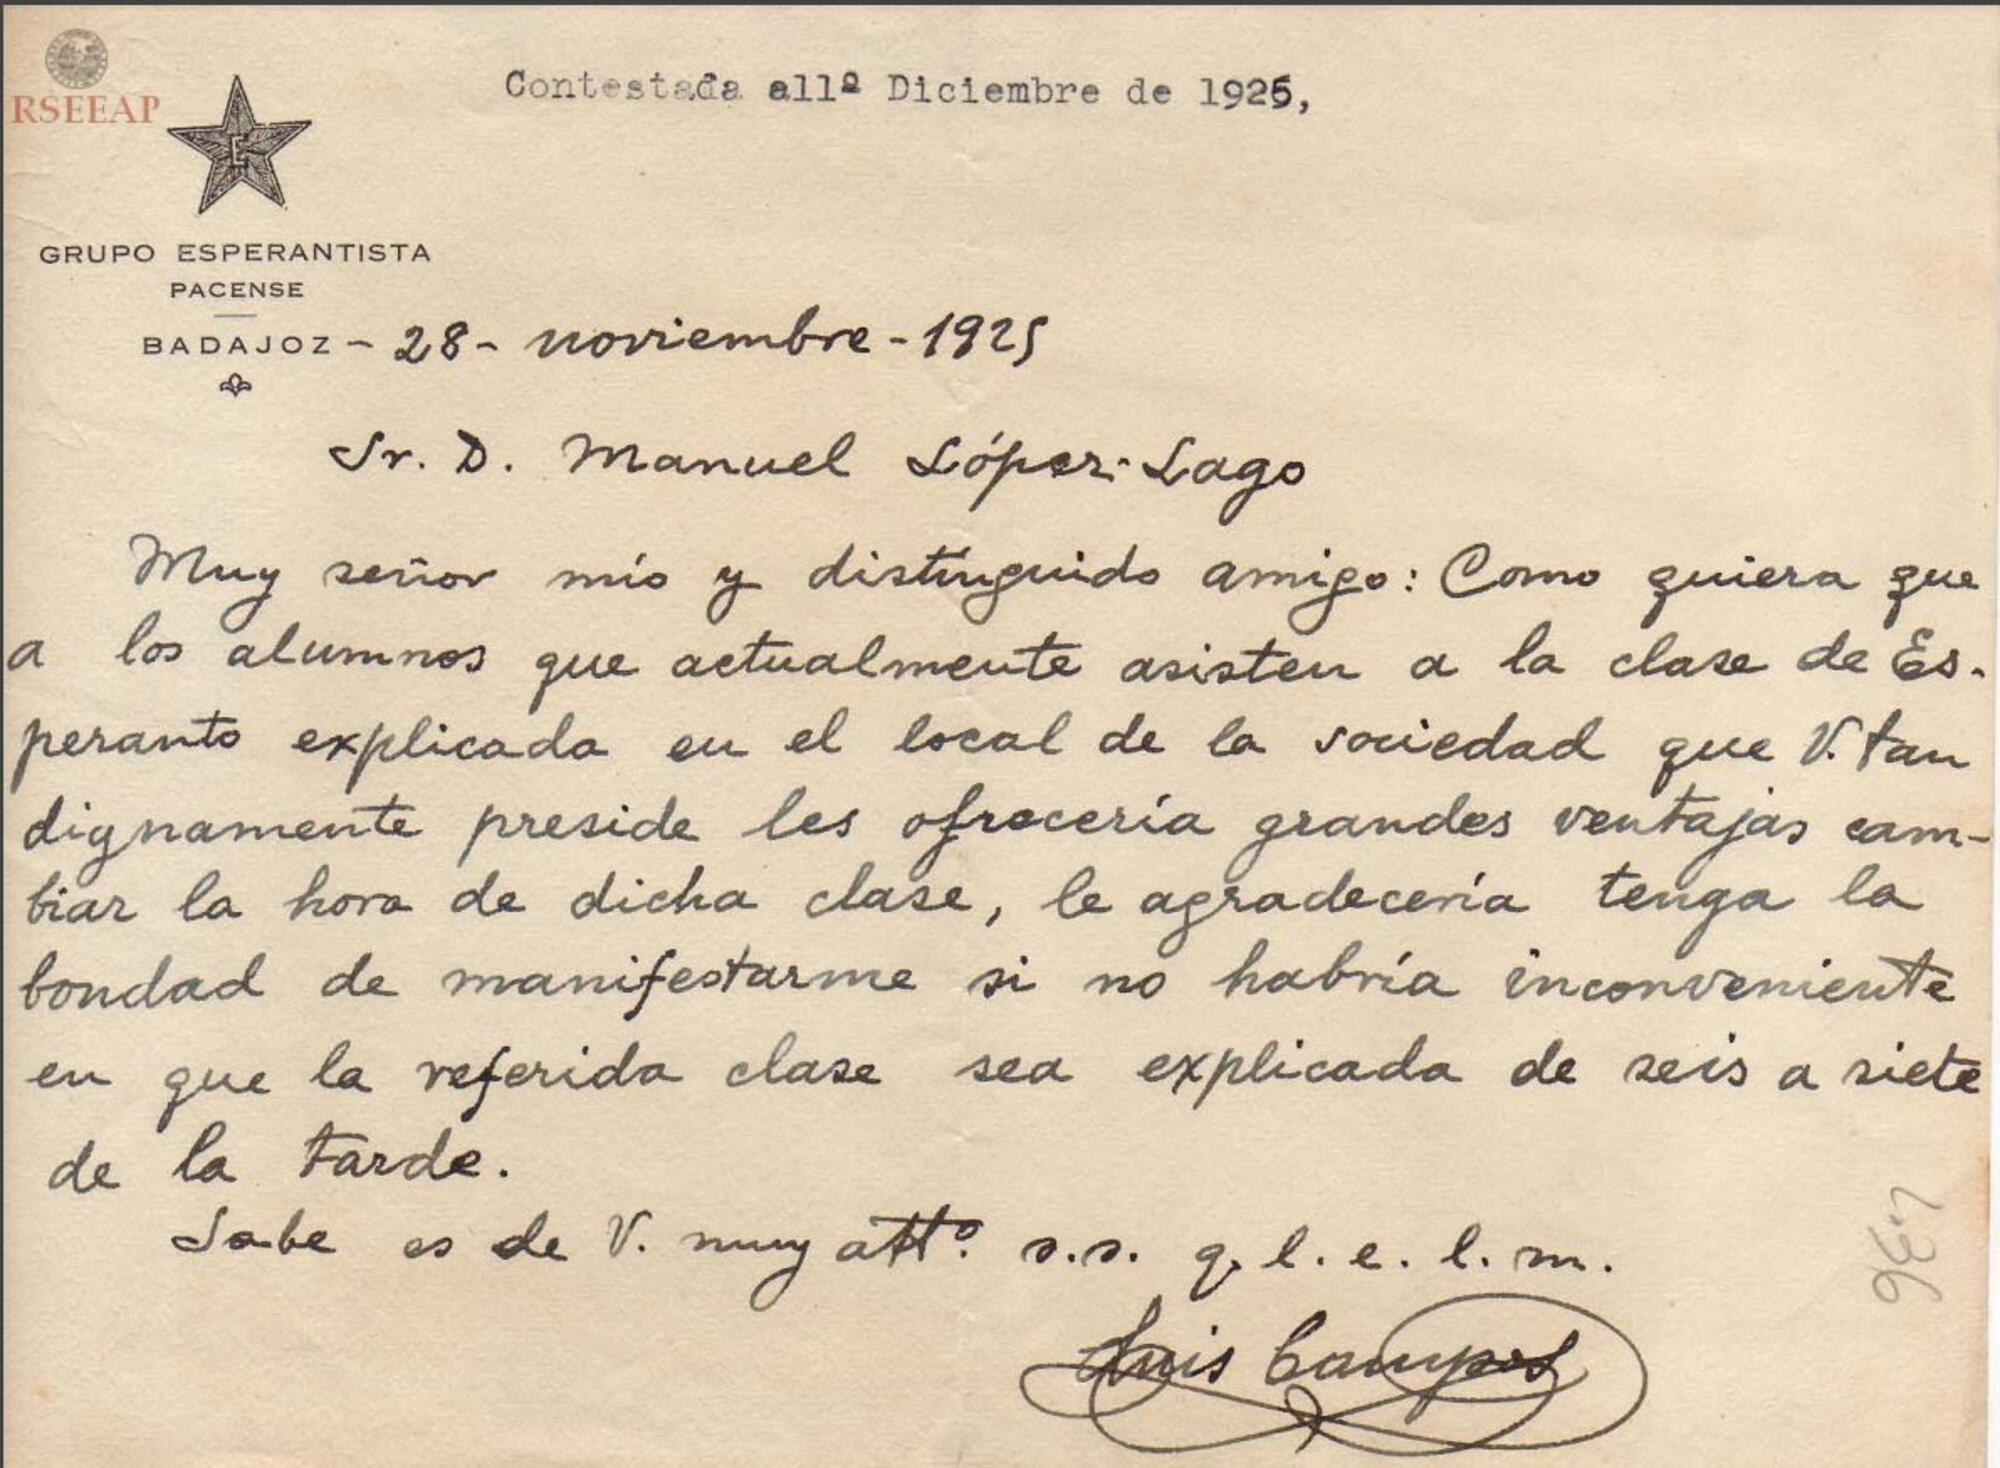 RSEEAP
Contestada al1º Diciembre de 1925,
E
GRUPO ESPERANTISTA
PACENSE
BADAJOZ - 28 - noviembre - 1925
Sr. D. Manuel López-Lago
Muy señor mío y distinguido amigo: Como quiera que
a los alumnos que actualmente asisten a la clase de Es-
peranto explicada en el local de la sociedad que V. tan
dignamente preside les ofrecería grandes ventajas cam-
biar la hora de dicha clase, le agradecería tenga la
bondad de manifestarme si no habría inconveniente
en que la referida clase sea explicada de seis a siete
de la tarde.
Sabe es de V. muy attº. s.s. q. l. e. l. m.
Luis Campos
136